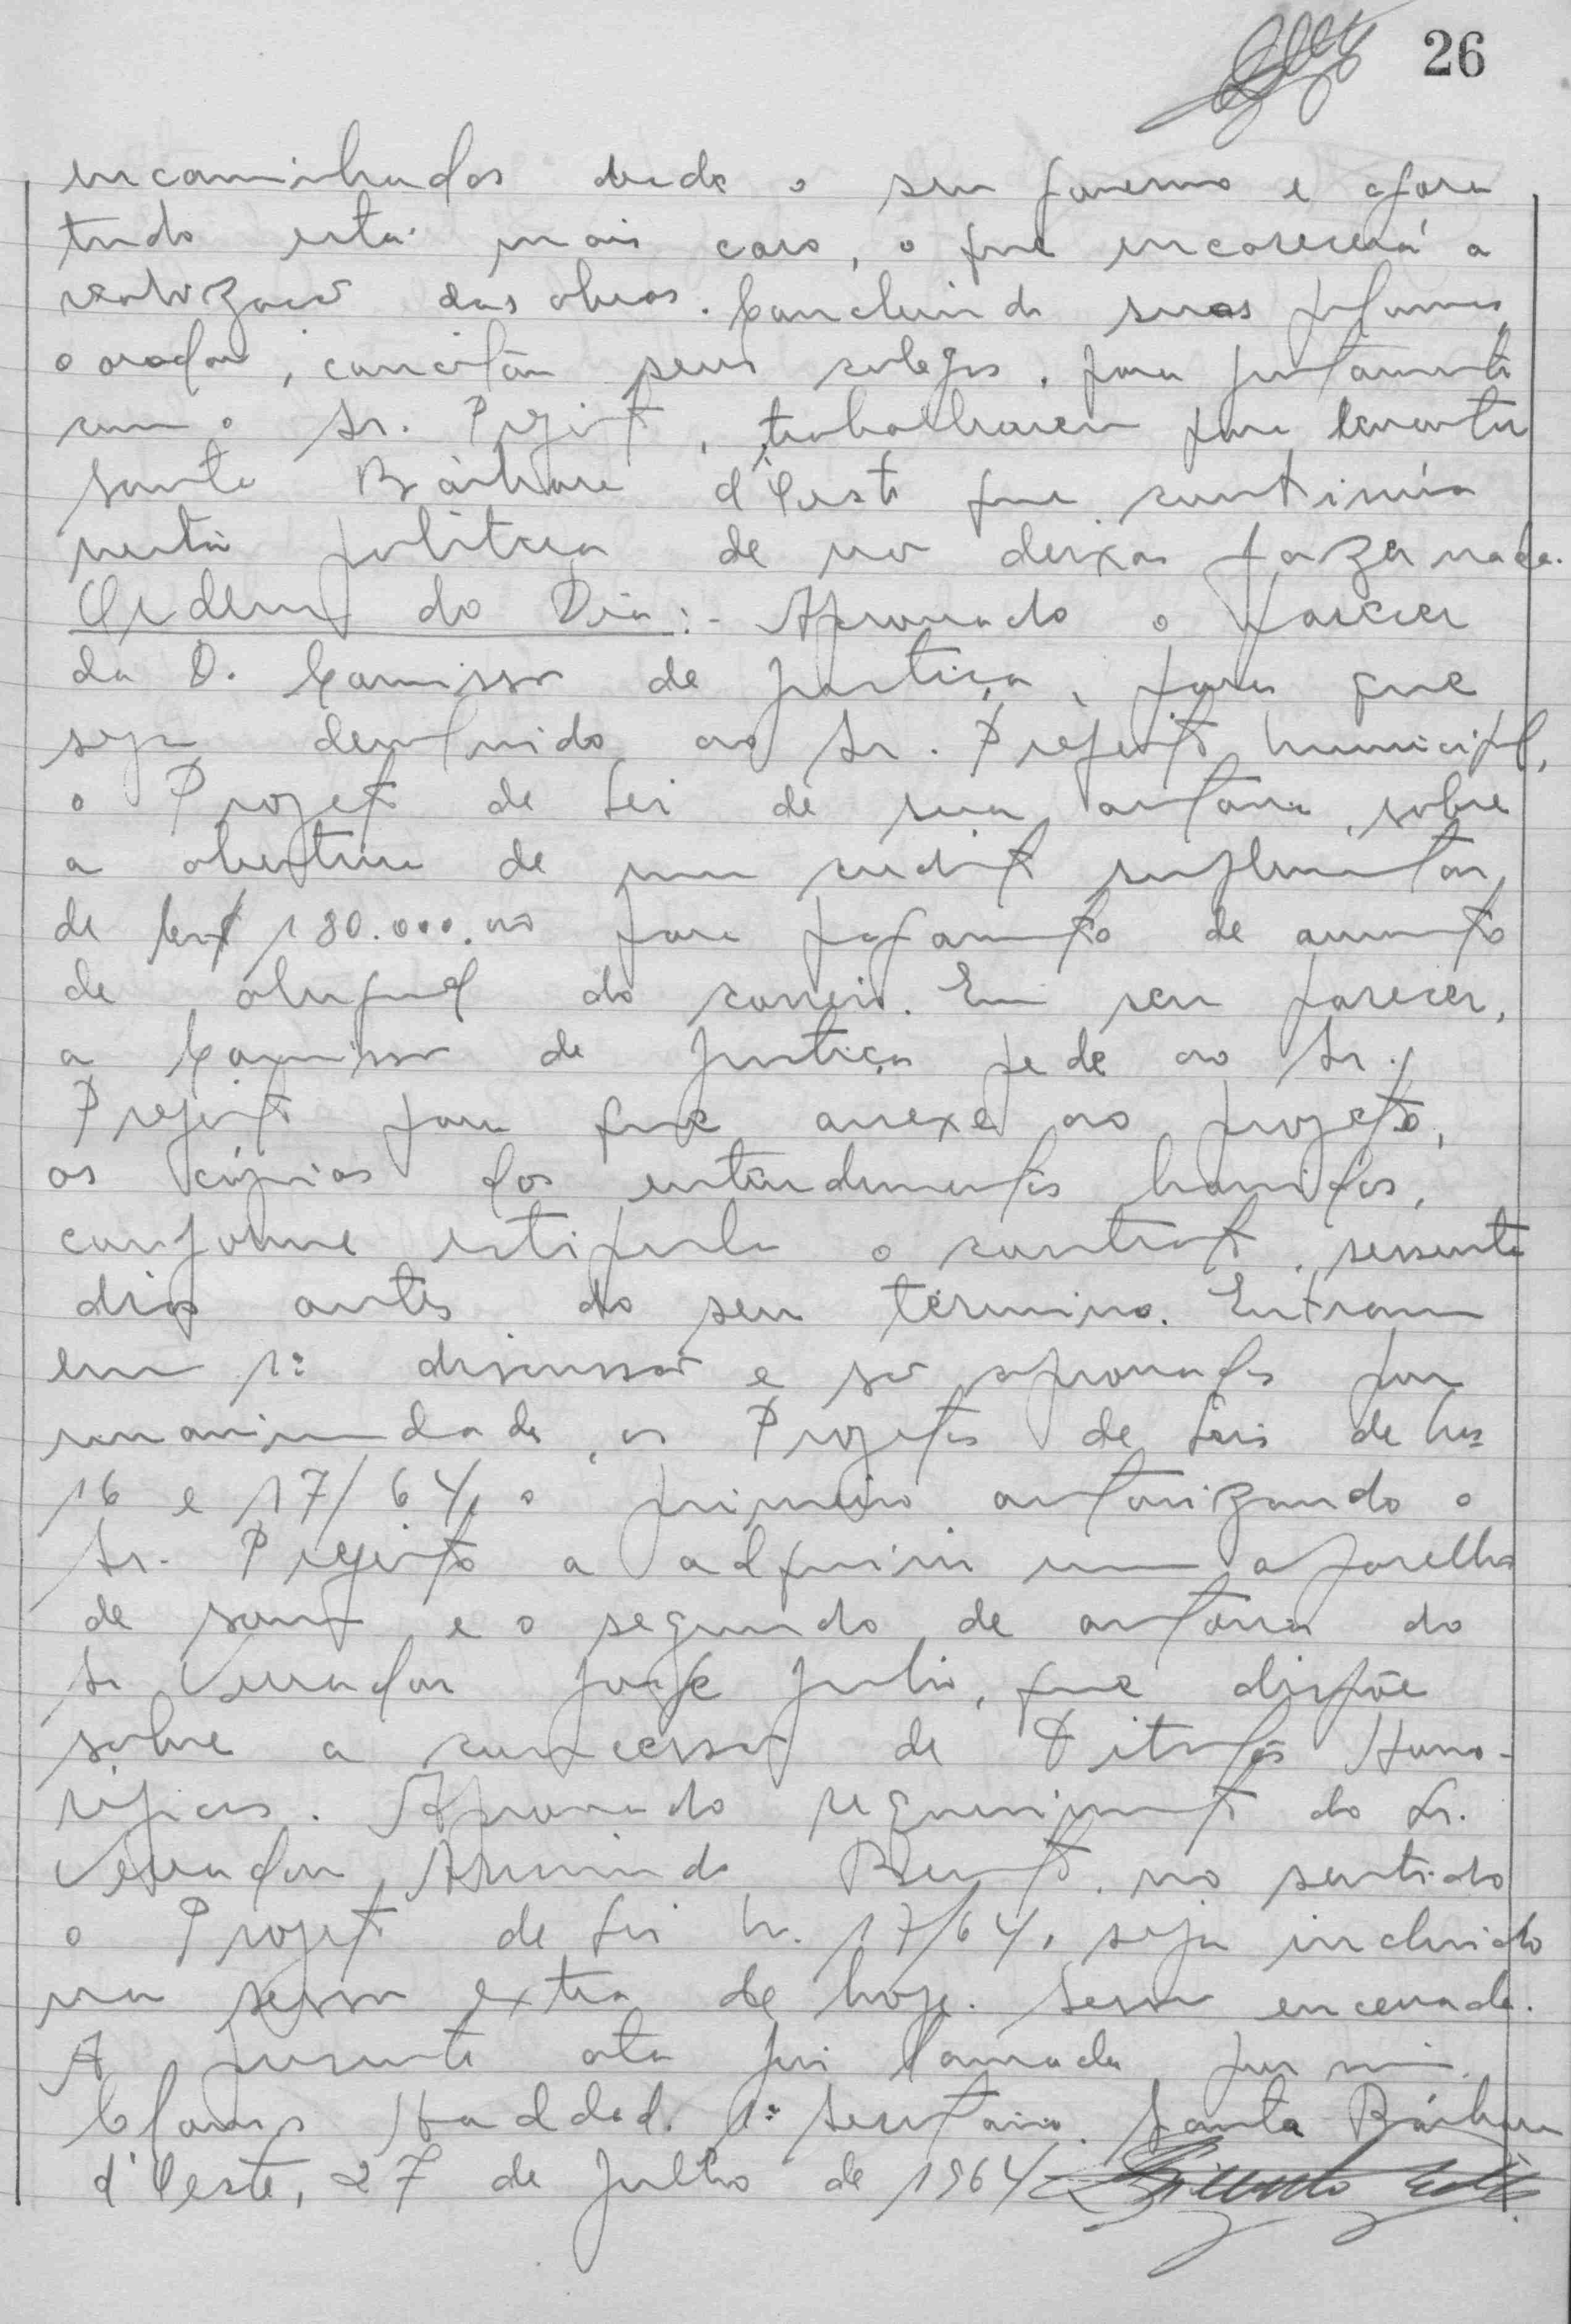 26
encaminhados desde o seu governo e agora
tudo está mais caro, o que encarecerá a
realização das obras. Concluindo suas palavras,
o orador, concitou seus colegas, para juntamente
com o Sr. Prefeito, trabalharem para levantar
Santa Bárbara d'Oeste que continúa
nesta politica de não deixar fazer nada.
Ordem do Dia:- Aprovado o parecer
da D. Comissão de Justiça, para que
seja devolvido ao Sr. Prefeito Municipal,
o Projeto de Lei de sua autoria, sobre
a abertura de um credito suplementar
de Cr$ 180.000.00 para pagamento de aumento
de aluguel do correio. Em seu parecer,
a Comissão de Justiça pede ao Sr.
Prefeito para que anexe ao projeto,
as cópias dos entendimentos havidos,
conforme estipula o contrato, sessenta
dias antes do seu término. Entram
em 1ª discussão e são aprovados por
unanimidade, os Projetos de Leis de Nºs
16 e 17/64, o primeiro autorizando o
Sr. Prefeito a adquirir um aparelho
de som e o segundo de autoria do
Sr Vereador Jorge Julio, que dispõe
sobre a concessão de Titulos Hono-
rificos. Aprovado requerimento do Sr.
Vereador Armindo Bento, no sentido
o Projeto de Lei N. 17/64, seja incluido
na sessão extra de hoje. Sessão encerrada.
A presente ata foi lavrada por mim.
Haddad. 1º Secretario. Santa Bárbara
d'Oeste, 27 de Julho de 1964